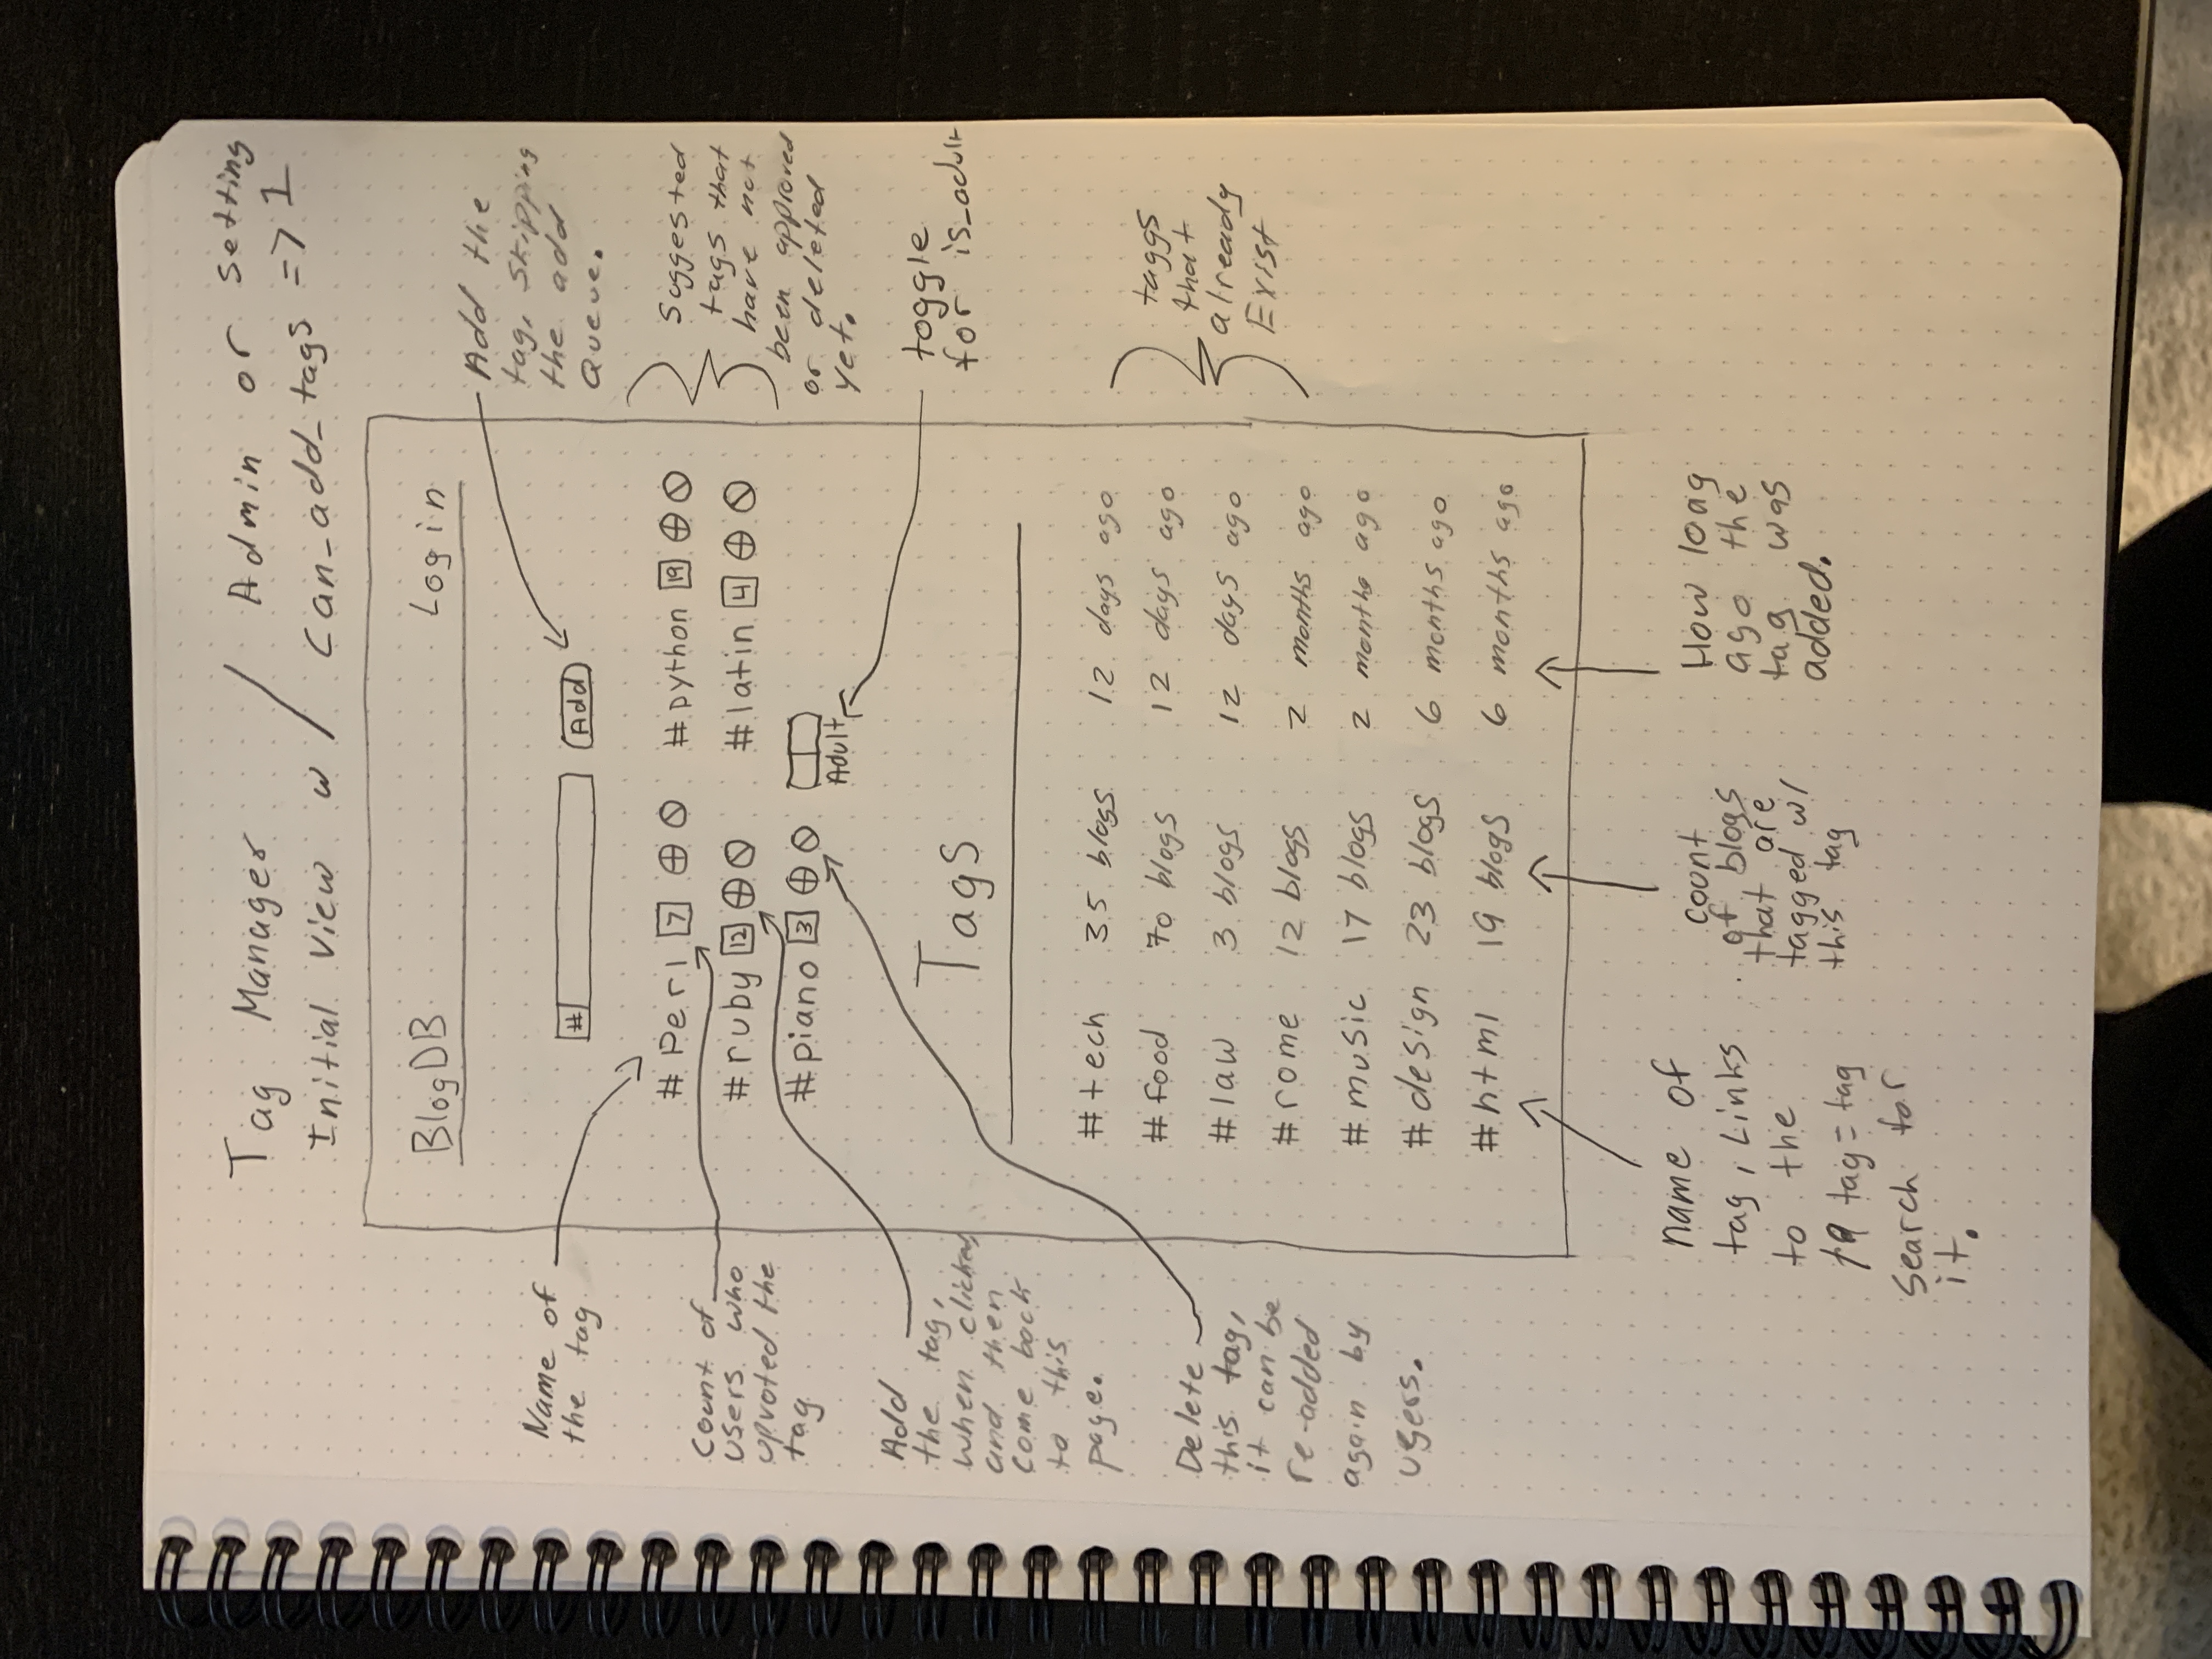 Tag Manager
Initial View w/ Admin or setting
can_add_tags => 1
BlogDB Login
# Add
Add the
tag, skipping
the add
queue.
#Perl 7 #python 19
#ruby 12 #latin 4
#piano 3
Adult
Name of
the tag
Count of
users who
upvoted the
tag
Add
the tag,
when clicked
and then
come back
to this
page.
Delete
this tag,
it can be
re-added
again by
users.
Suggested
tags that
have not
been approved
or deleted
yet.
toggle
for is_adult
Tags
#tech 35 blogs 12 days ago
#food 70 blogs 12 days ago
#law 3 blogs 12 days ago
#rome 12 blogs 2 months ago
#music 17 blogs 2 months ago
#design 23 blogs 6 months ago
#html 19 blogs 6 months ago
taggs
that
already
Exist
name of
tag, Links
to the
tag=tag
search for
it.
count
of blogs
that are
tagged w/
this tag
How long
ago the
tag was
added.